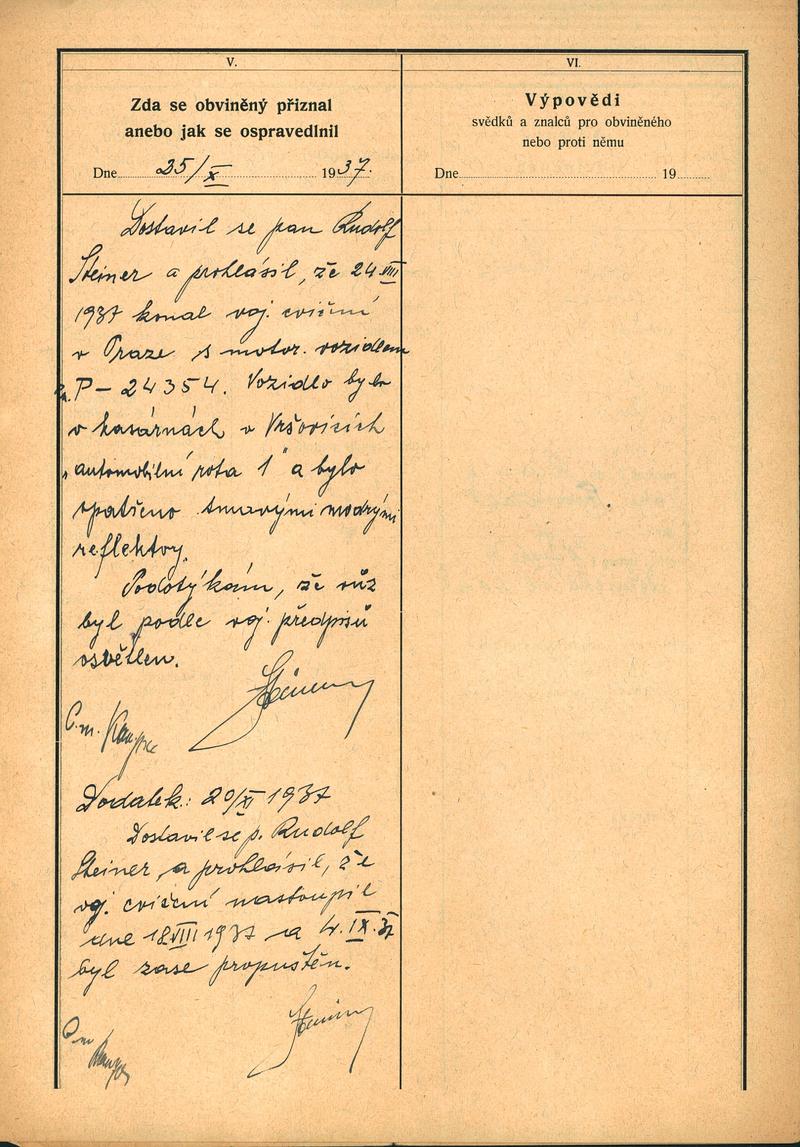 V.
Zda se obviněný přiznal
anebo jak se ospravedlnil
Dne 25/X 1937.
Dostavil se pan Rudolf
Steiner a prohlásil, že 24 VIII
1937 konal voj. cvičení
v Praze s motor. vozidlem
zn. P – 24354. Vozidlo bylo
v kasárnách v Vršovicích
„automobilní rota 1" a bylo
opatřeno tmavými modrými
reflektory.
Podotýkám, že vůz
byl podle voj. předpisů
osvětlen.
Steiner
Dodatek: 20/XI 1937
Dostavil se p. Rudolf
Steiner a prohlásil, že
voj. cvičení nastoupil
dne 18 VIII 1937 a 4. IX. 37
byl zase propuštěn.
Steiner
VI.
Výpovědi
svědků a znalců pro obviněného
nebo proti němu
Dne 19